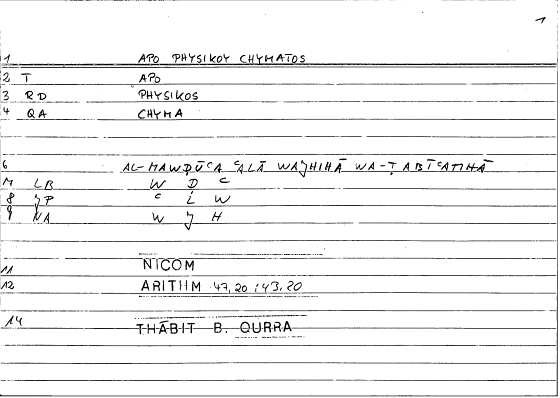 1
1 APO PHYSIKOY CHYMATOS
2 T APO
3 RD PHYSIKOS
4 QA CHYMA
6 AL-MAWḌŪʿA ʿALĀ WAǦHIHĀ WA-ṬABĪʿATIHĀ
7 LB W Ḍ ʿ
8 ǦP ʿ L W
9 NA W Ǧ H
11 NICOM
12 ARITHM
14 THĀBIT B. QURRA